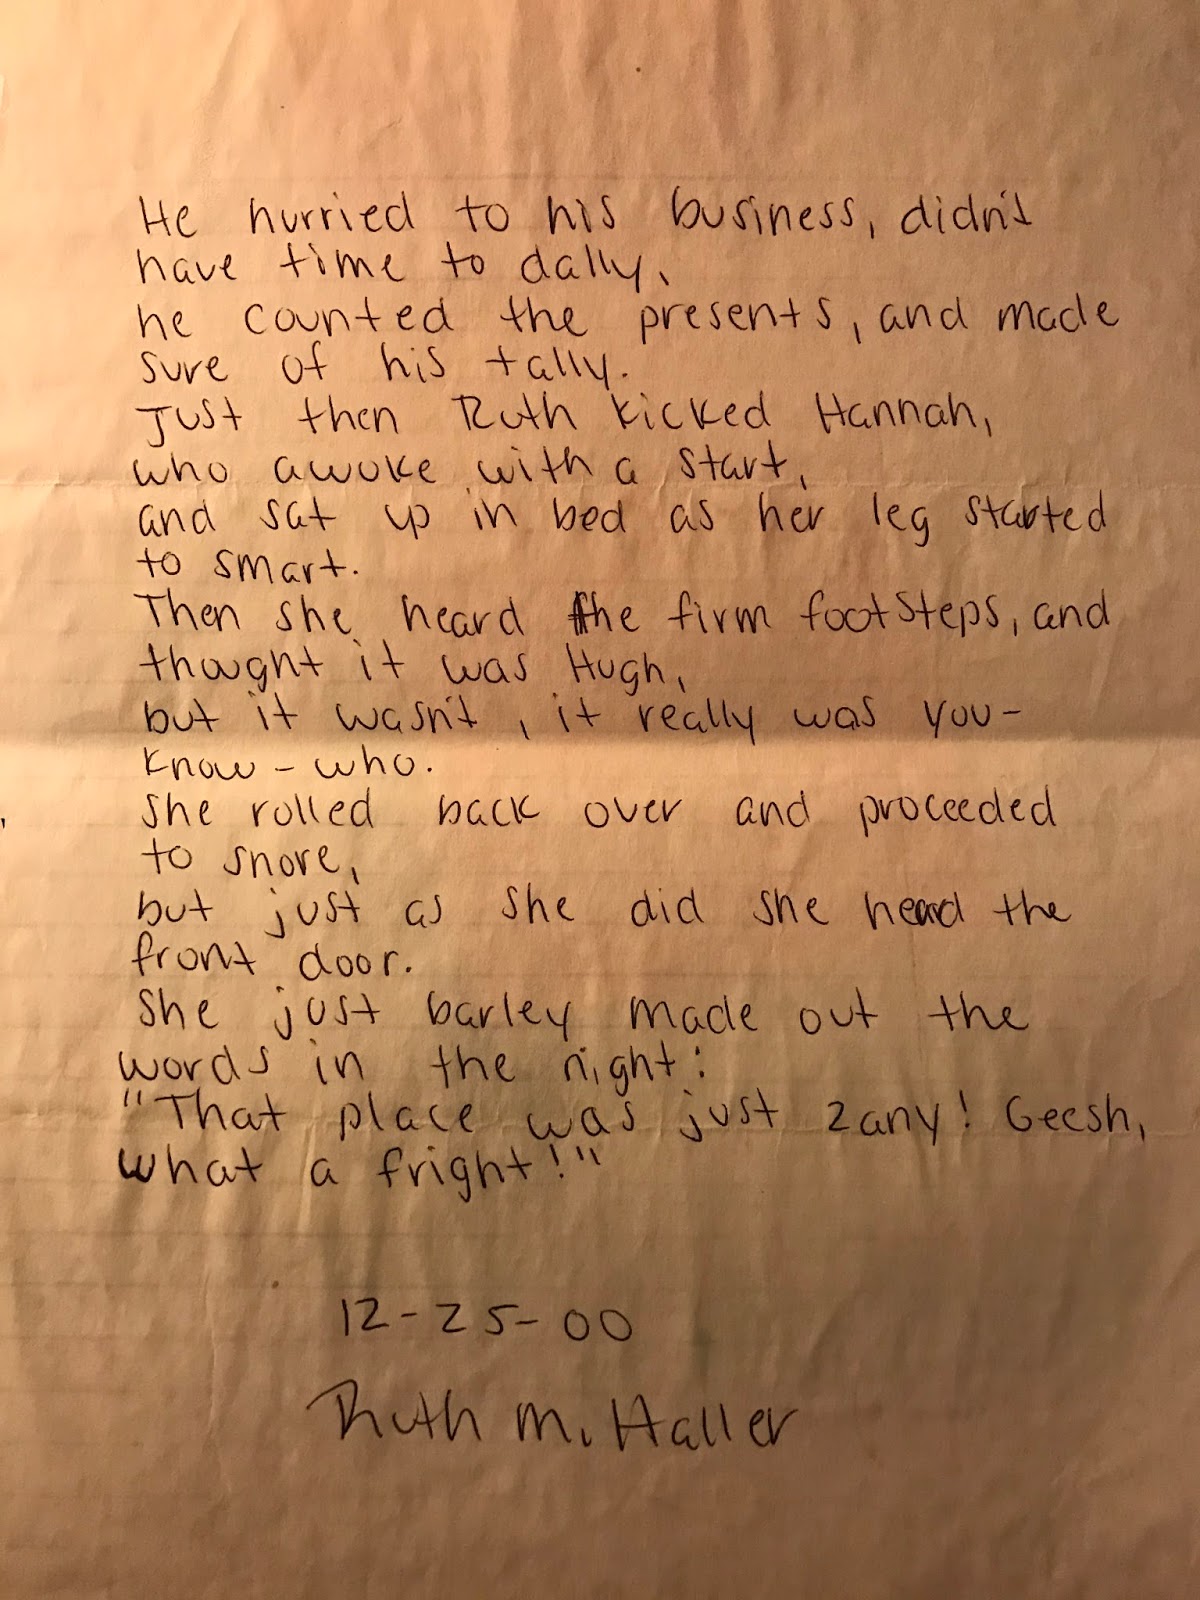 He hurried to his business, didn't
have time to dally,
he counted the presents, and made
sure of his tally.
Just then Ruth kicked Hannah,
who awoke with a start,
and sat up in bed as her leg started
to smart.
Then she heard the firm footsteps, and
thought it was Hugh,
but it wasn't, it really was you-
know-who.
She rolled back over and proceeded
to snore,
but just as she did she heard the
front door.
She just barley made out the
words in the night:
"That place was just zany! Geesh,
what a fright!"
12-25-00
Ruth M. Haller